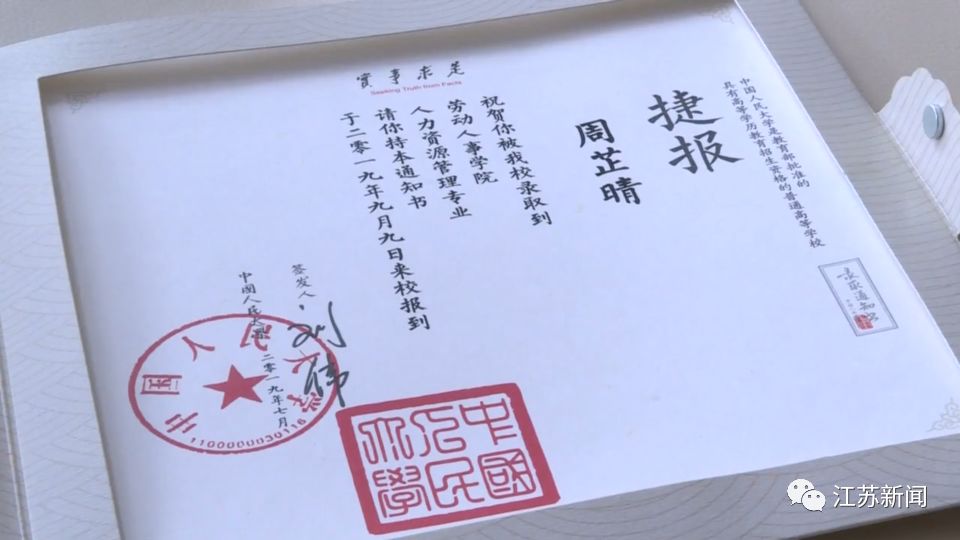 實事求是
Seeking Truth from Facts
中国人民大学是教育部批准的
具有高等学历教育招生资格的普通高等学校
录取通知书
捷报
周芷晴
祝贺你被我校录取到
劳动人事学院
人力资源管理专业
请你持本通知书
于二零一九年九月九日来校报到
签发人：刘伟
中国人民大学
二零一九年七月
中国人民大学
1100000030116
中國人民大學
江苏新闻